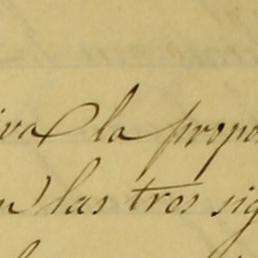 iva la propo
n las tres sig